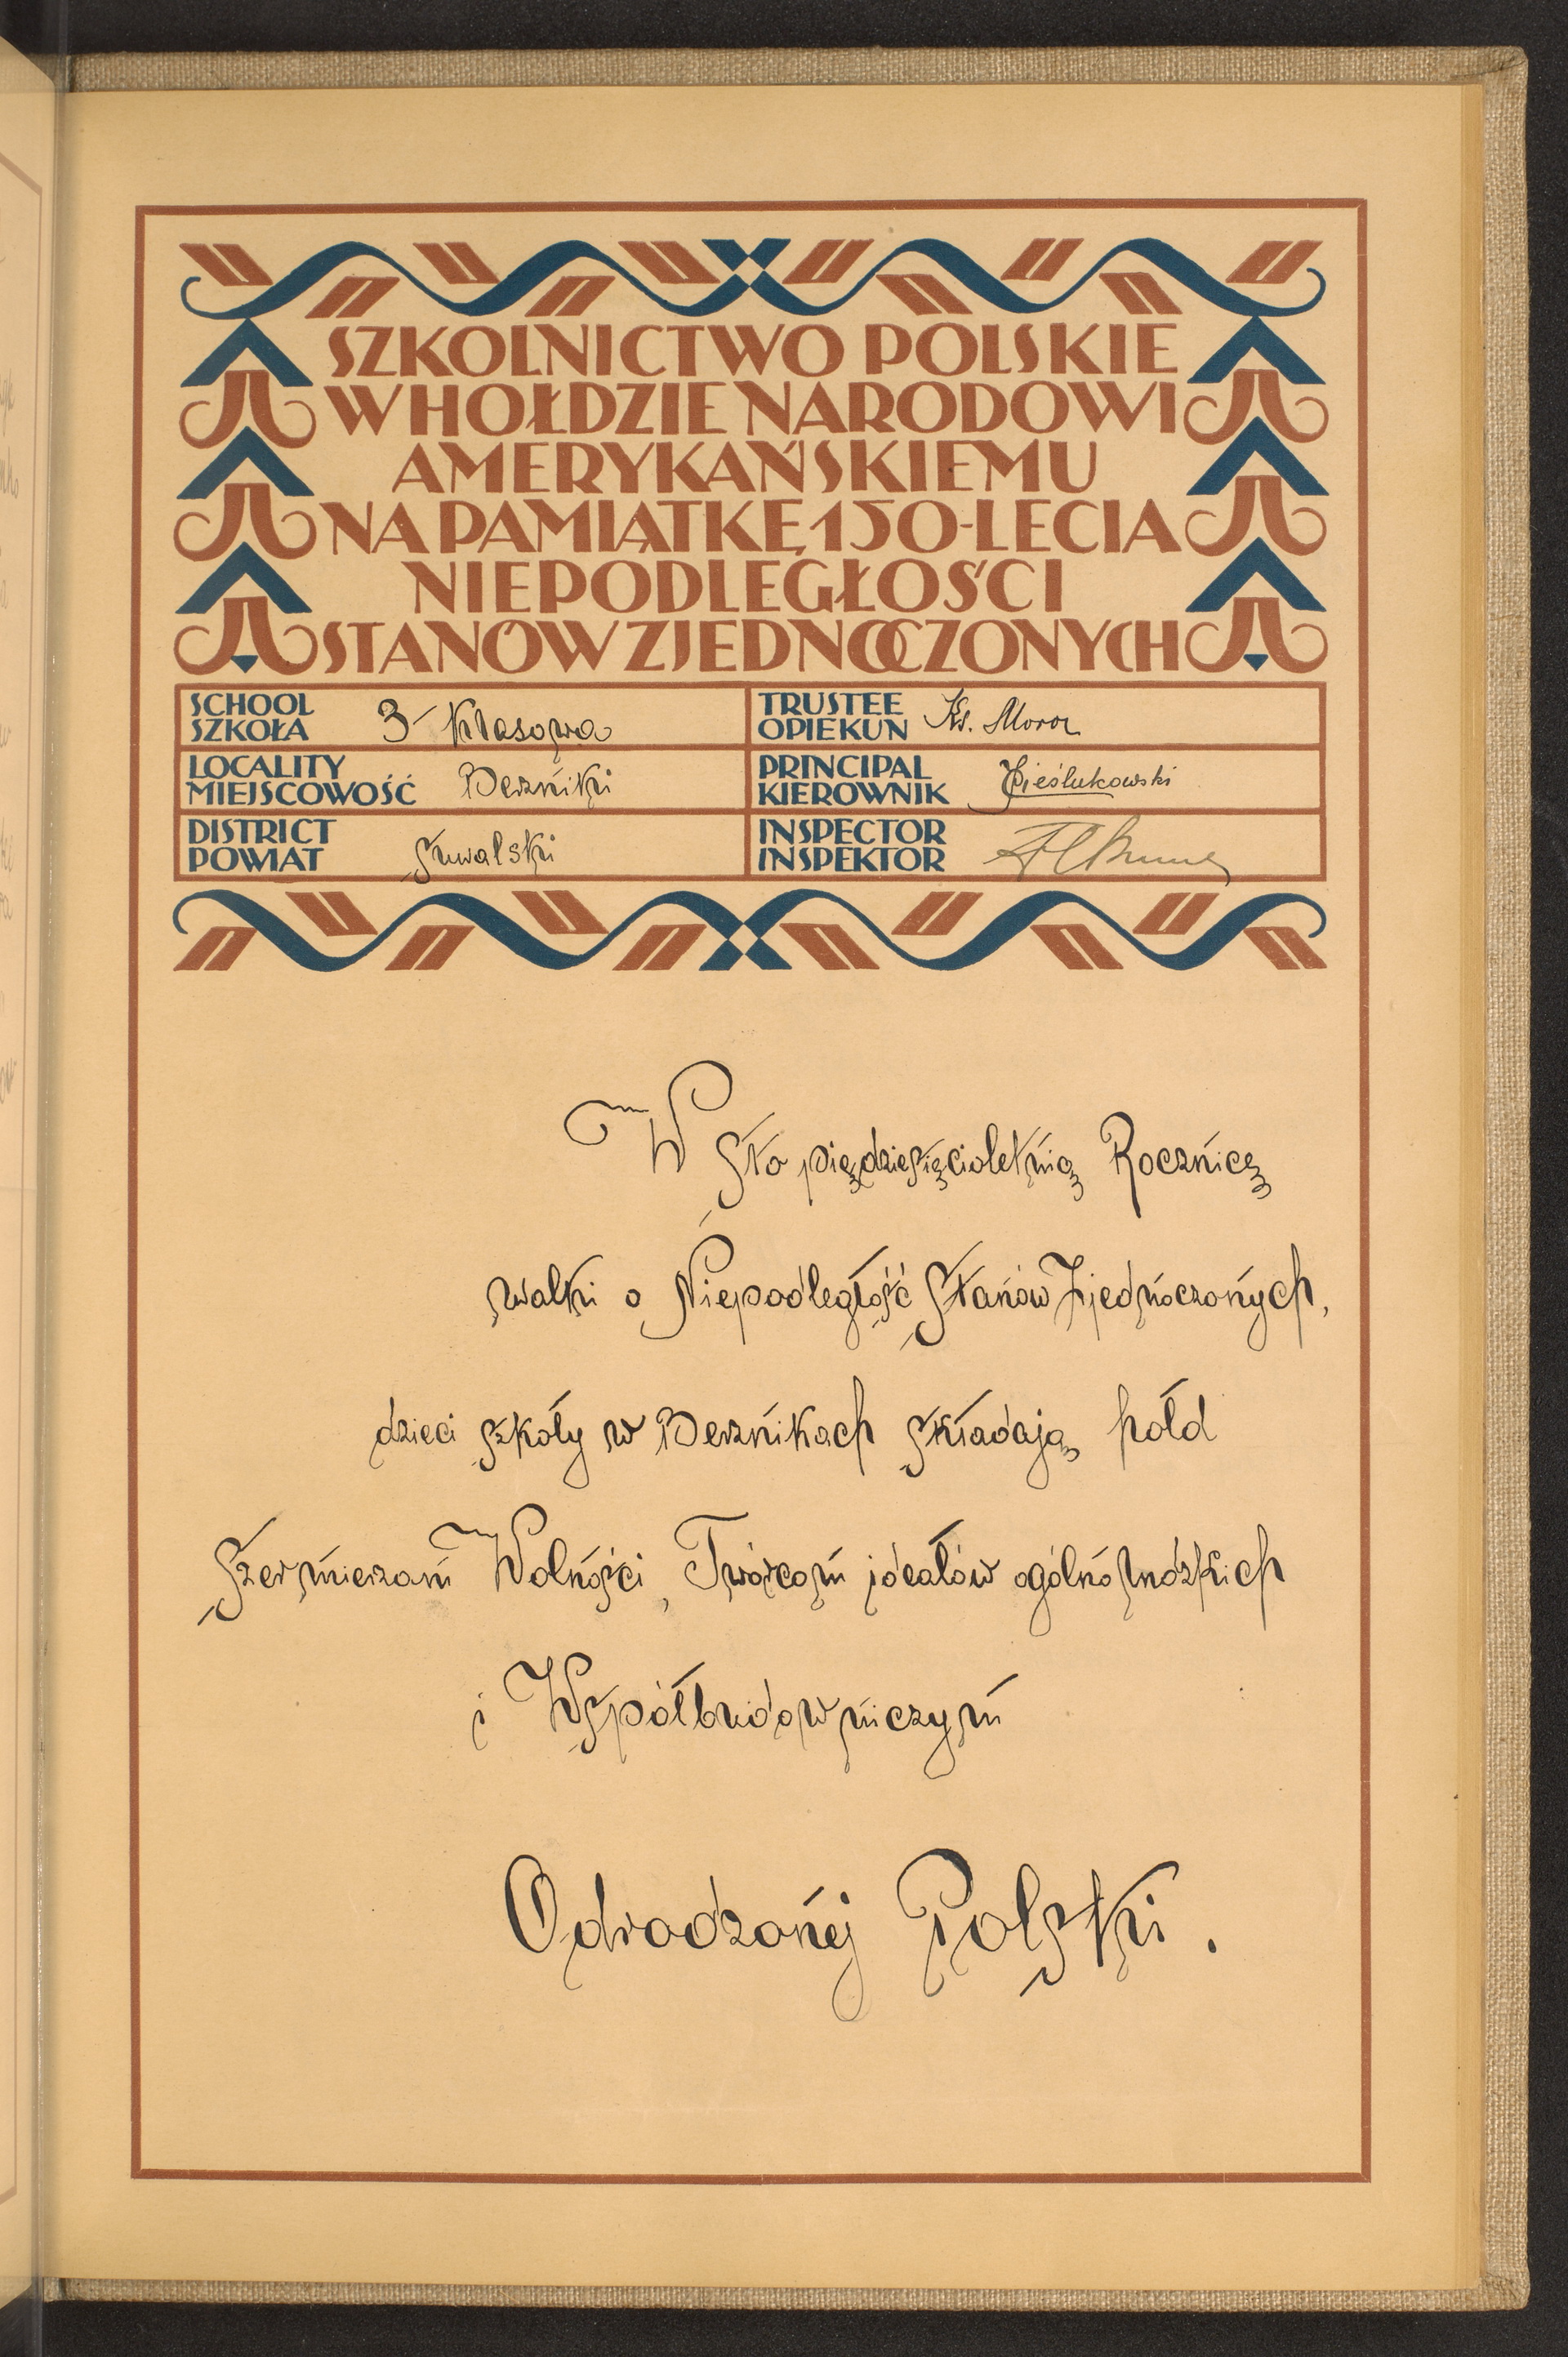 SZKOLNICTWO POLSKIE
W HOŁDZIE NARODOWI
AMERYKAŃSKIEMU
NA PAMIĄTKĘ 150-LECIA
NIEPODLEGŁOŚCI
STANÓW ZJEDNOCZONYCH
SCHOOL
SZKOŁA 3-klasowa
TRUSTEE
OPIEKUN Ks. Moroz
LOCALITY
MIEJSCOWOŚĆ Berżniki
PRINCIPAL
KIEROWNIK
DISTRICT
POWIAT Suwalski
INSPECTOR
INSPEKTOR
W Sto pięćdziesięcioletnią Rocznicę
walki o Niepodległość Stanów Zjednoczonych,
dzieci szkoły w Berżnikach składają hołd
Szermierzom Wolności, Twórcom ideałów ogólnoludzkich
i Współbudowniczym
Odrodzonej Polski.